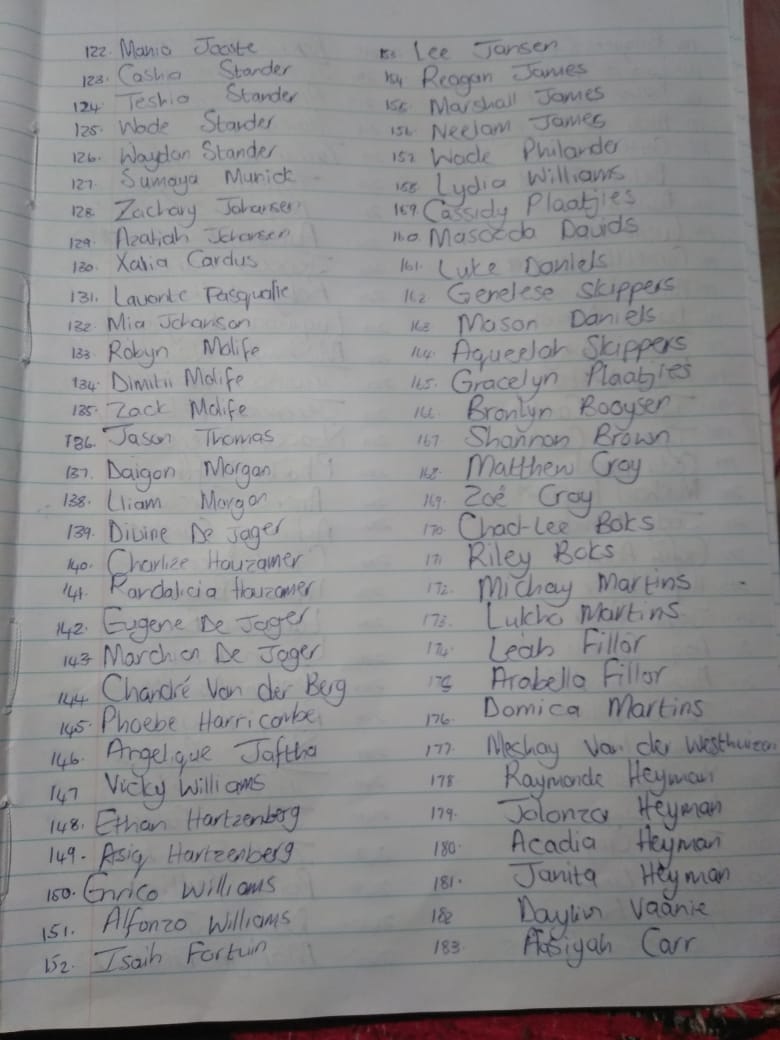 122. Mania Jaaste
123. Casha Stander
124. Teshia Stander
125. Wade Stander
126. Waydon Stander
127. Sumaya Munick
128. Zachary Johansen
129. Azaliah Johansen
130. Xalia Cardus
131. Lavonte Pasqualie
132. Mia Johanson
133. Robyn Malife
134. Dimitii Malife
135. Zack Malife
136. Jason Thomas
137. Daigon Morgan
138. Lliam Morgan
139. Divine De Jager
140. Charlize Houzamer
141. Randalicia Houzamer
142. Eugene De Jager
143. De Jager
144. Chandré Van der Berg
145. Phoebe Harricombe
146. Angelique Jaftha
147 Vicky Williams
148. Ethan Hartzenberg
149. Asiq Hartzenberg
150. Enrico Williams
151. Alfonzo Williams
152. Isaih Fortuin
153. Lee Jansen
154. Reagan James
155. Marshall James
156. Neelam James
157. Wade Philander
158. Lydia Williams
159. Cassidy Plaatjies
160. Masooda Davids
161. Luke Daniels
162. Genelese Skippers
163. Mason Daniels
164. Aqueelah Skippers
165. Gracelyn Plaatjies
166. Bronlyn Booysen
167. Shannon Brown
168. Matthew Cray
169. Zoé Cray
170. Chad-Lee Boks
171 Riley Boks
172. Michay Martins
173. Lukho Martins
174. Leah Fillor
175 Arabella Fillor
176. Damica Martins
177. Meshay Van der Westhuizen
178 Raymonde Heyman
179. Jolonza Heyman
180. Acadia Heyman
181. Janita Heyman
182 Daylin Vaanie
183. Aasiyah Carr